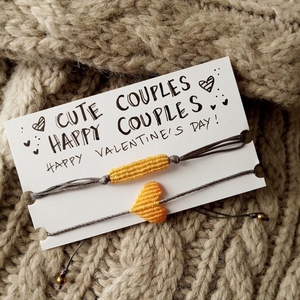 CUTE COUPLES
HAPPY COUPLES
HAPPY VALENTINE'S DAY!